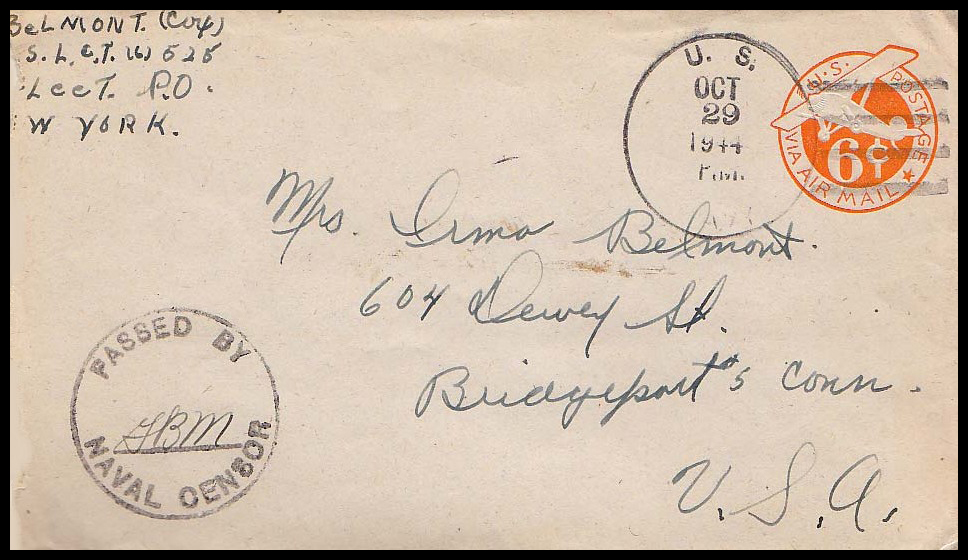 BELMONT. (Cox)
S. L.C.T. (6) 525
Leet. P.O.
W YORK.
U. S.
OCT
29
1944
P.M.
U.S. POSTAGE
6¢
VIA AIR MAIL
Mrs. Irma Belmont.
604 Dewey St.
Bridgeport 5 Conn.
U.S.A.
PASSED BY
NAVAL CENSOR